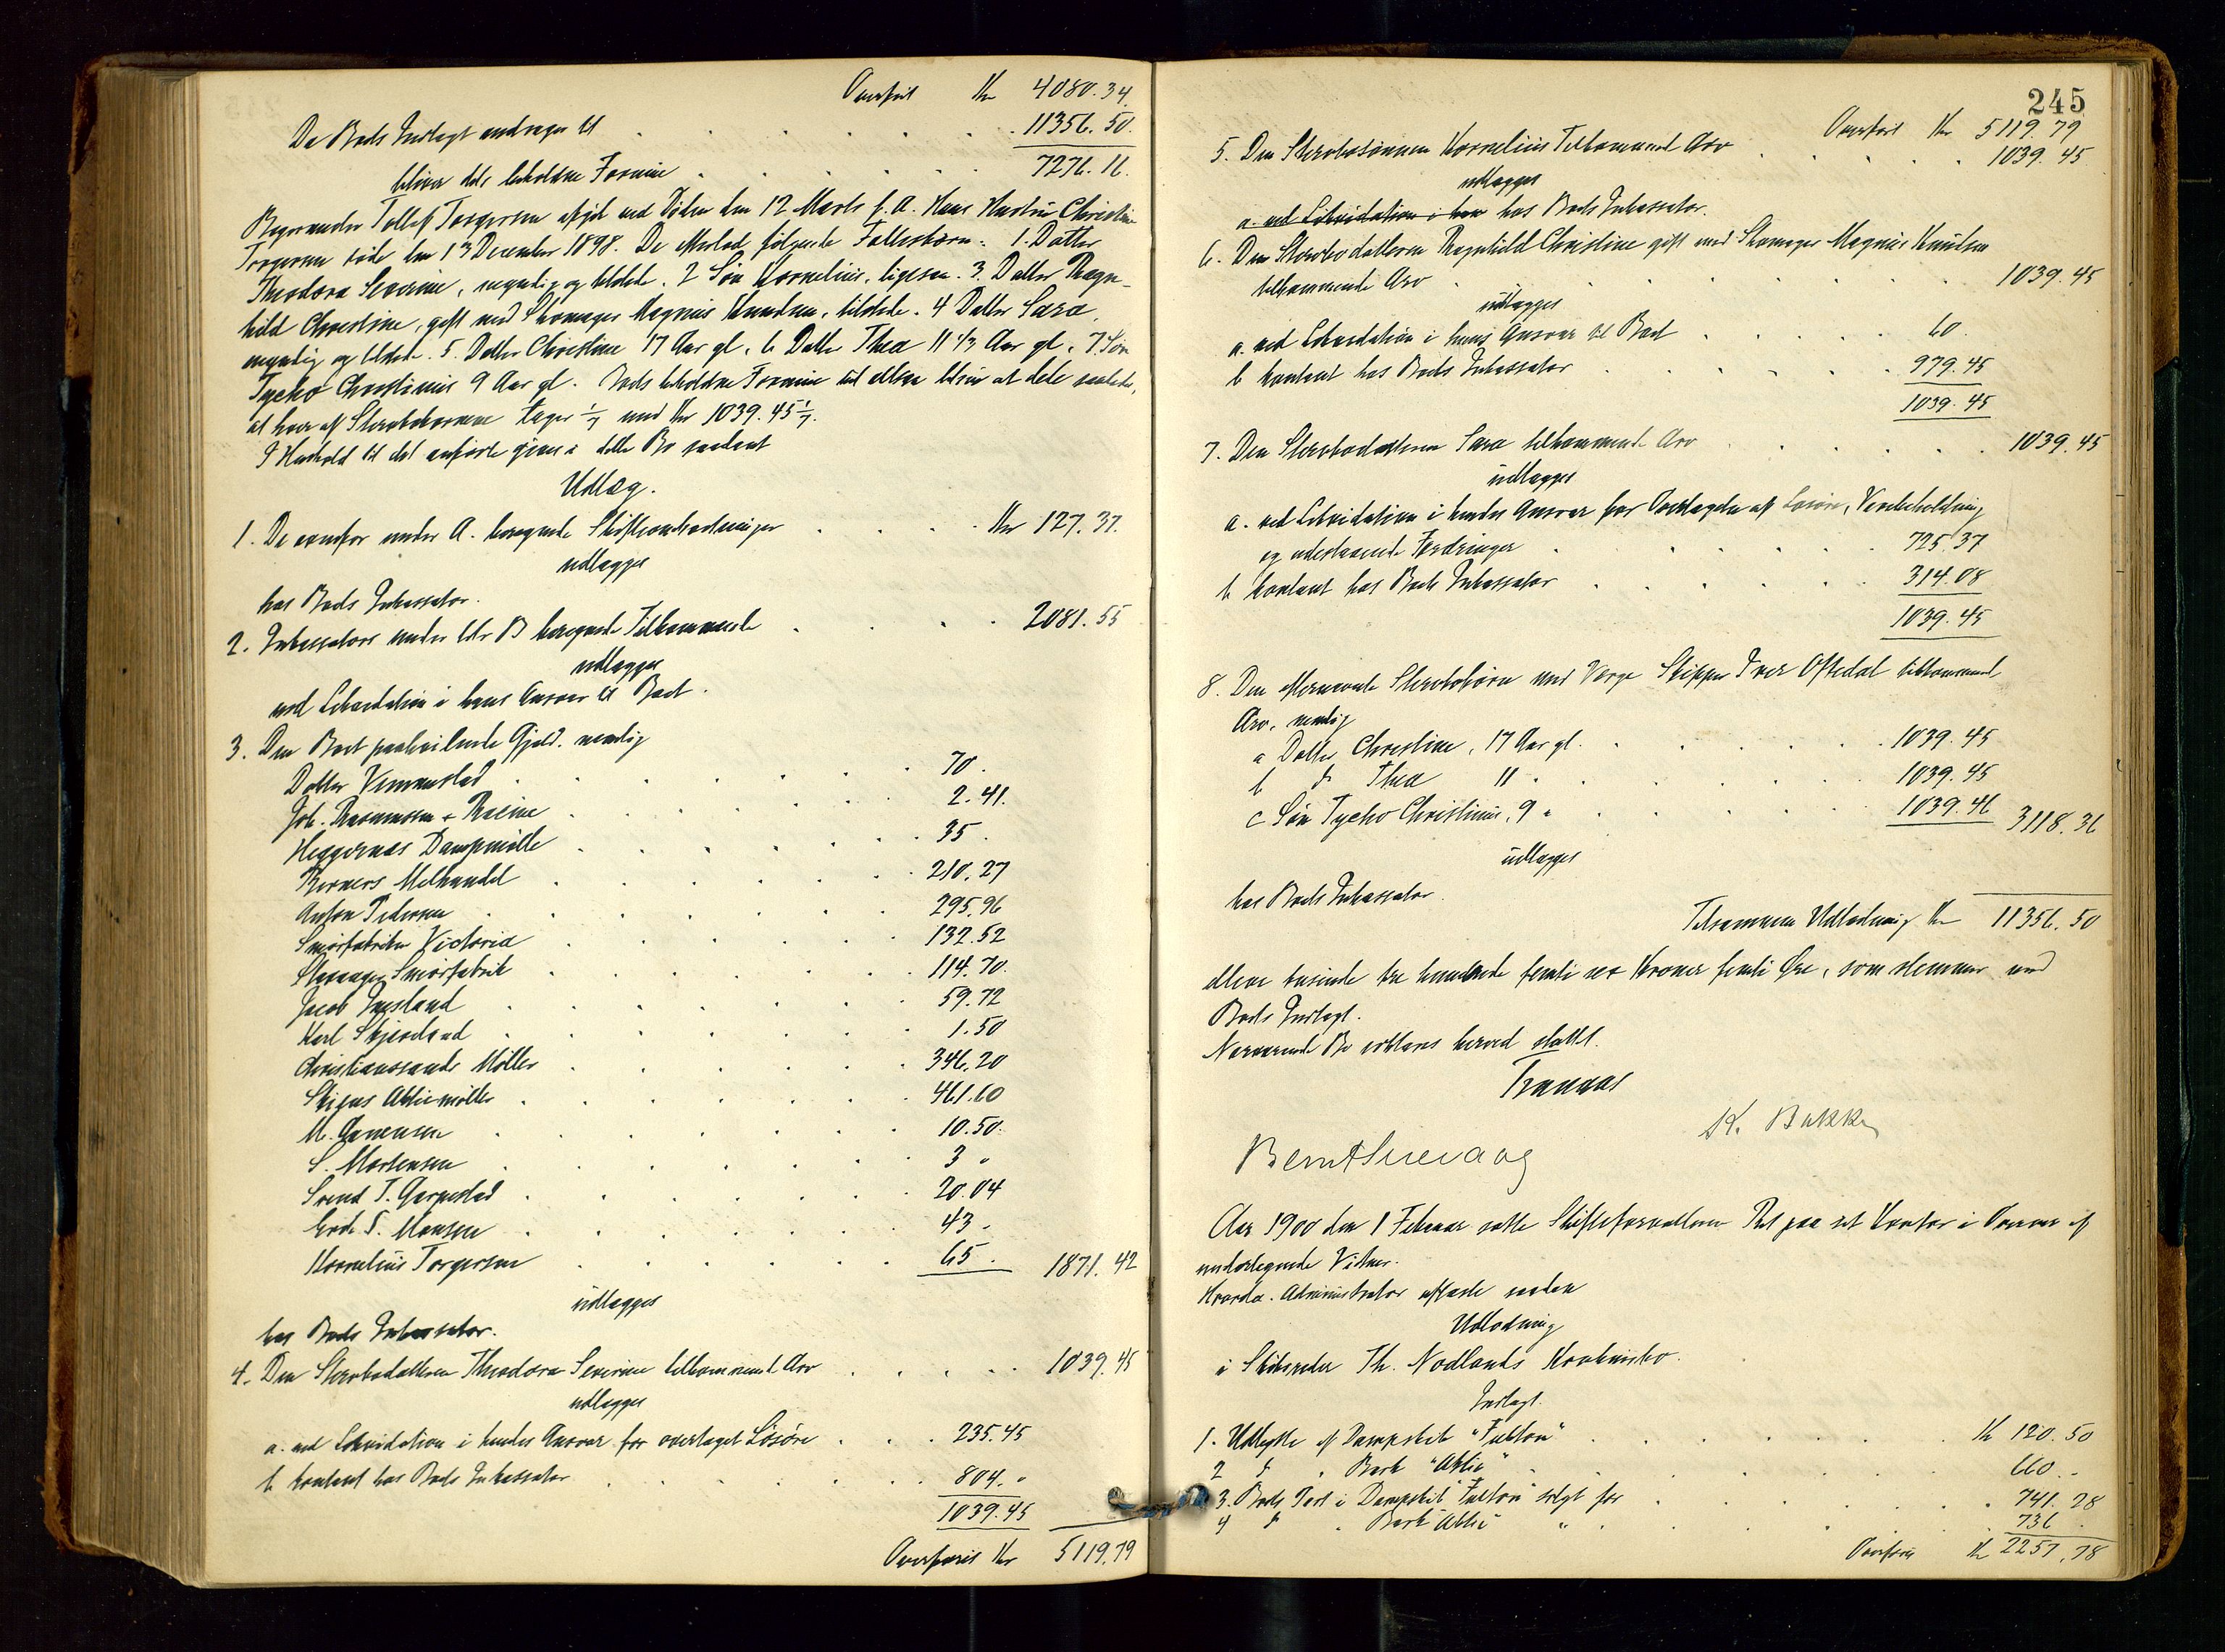 Overført Kr 4080.34.
Da Boets Indtægt andrager til 11356.50.
bliver dets beholdne Formue 7276.16.
Begravnder Tollef Torgersen afgik ved Døden den 12 Marts f. A. Hans Hustru Christine
Torgersen døde den 13 December 1898. De efterlod følgende Fællesbørn: 1. Datter
Theodora Severine, myndig og tilstede. 2 Søn Kornelius, ligesaa. 3. Datter Ragn-
hild Christine, gift med Skomager Magnus Knudsen, tilstede. 4 Datter Sara,
myndig og tilstede. 5. Datter Christine 17 Aar gl. 6 Datter Thea 11 1/2 Aar gl. 7. Søn
Tycho Christinius 9 Aar gl. Boets beholdne Formue vil altsaa blive at dele saaledes,
at hver af Stervbobørnene tager 1/7 med Kr 1039.45 1/7.
I Henhold til det anførte gives i dette Bo saadant
Udlæg.
1. De ovenfor under A. beregnede Skifteomkostninger Kr 127.37.
udlægges
hos Boets Inkassator.
2. Inkassators under litr B beregnede Tilkommende 2081.55
udlægges
ved Likvidation i hans Ansvar til Boet.
3. Den Boet paahvilende Gjæld, nemlig
Dalter Vemmestad 70.
Joh. Rasmussen & Racine 2.41.
Heggernæs Dampmølle 35.
Berners Melhandel 210.27
Anton Pedersen 295.96
Smørfabriken Victoria 132.52
Stavanger Smørfabrik 114.70.
Jacob Jæsland 59.72
Karl Skjæveland 1.50
Christianssands Møller 346.20
Skiens Aktiemølle 461.60
M. Gamensen 10.50.
S. Mortensen 3 "
Svend T. Garpestad 20.04
Endr. S. Hansen 43 -
Kornelius Torgersen 65. 1871.42
udlægges
hos Boets Inkassator.
4. Den Stervbodatteren Theodora Severine tilkommende Arv 1039.45
udlægges
a. ved Likvidation i hendes Ansvar for overtaget Løsøre 235.45
b kontant hos Boets Inkassator 804. "
1039.45
Overføres Kr 5119.79
245
Overført Kr 5119.79
5. Den Stervbosønnen Kornelius Tilkommende Arv 1039.45.
udlægges
a. ved Likvidation i han hos Boets Inkassator.
6. Den Stervbodatteren Ragnhild Christine gift med Skomager Magnus Knudsen
tilkommende Arv 1039.45
udlægges
a. ved Likvidation i hans Ansvar til Boet 60.
b kontant hos Boets Inkassator 979.45
1039.45
7. Den Stervbodatteren Sara tilkommende Arv 1039.45
udlægges
a. ved Likvidation i hendes Ansvar for Overtagelse af Løsøre, Varebeholdning
og udestaaende Fordringer 725.37
b kontant hos Boets Inkassator 314.08
1039.45
8. Den efternævnte Stervbobørn med Værge Skipper Iver Oftedal tilkommende
Arv, nemlig
a Datter Christine, 17 Aar gl. 1039.45
b do Thea 11 " 1039.45
c Søn Tycho Christinius, 9 " 1039.46 3118.36
udlægges
hos Boets Inkassator.
Tilsammen Udlodning Kr 11356.50
elleve tusinde tre hundrede femti sex Kroner femti Øre, som stemmer med
Boets Indtægt.
Nærværende Bo erklæres herved sluttet.
K. Bakke
Aar 1900 den 1 Februar satte Skifteforvalteren Ret paa sit Kontor i Overvær af
undertegnede Vidner.
Hvorda. Administrator affattede saadan
Udlodning
i Skibsreder Th. Nodlands Konkursbo.
Indtægt.
1. Udbytte af Dampskib "Fulton" Kr 120.50
2 do " Bark "Aktiv" 660.-
3. Boets Part i Dampskib "Fulton" solgt for 741.28
4 do " Bark "Aktiv" " 736.
Overføres Kr 2257.78